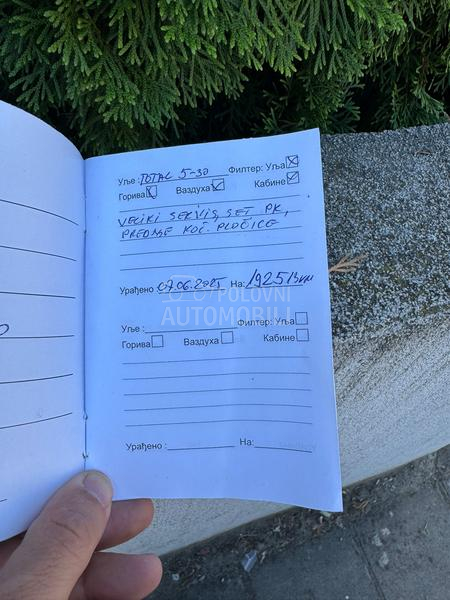 Уље : TOTAL 5-30 Филтер: Уља
Горива Ваздуха Кабине
VELIKI SERVIS, SET PK,
PREDNJE KOČ. PLOČICE
Урађено 07.06.2025 На: 192513 km
POLOVNI
AUTOMOBILI
Уље : Филтер: Уља
Горива Ваздуха Кабине
Урађено : На: